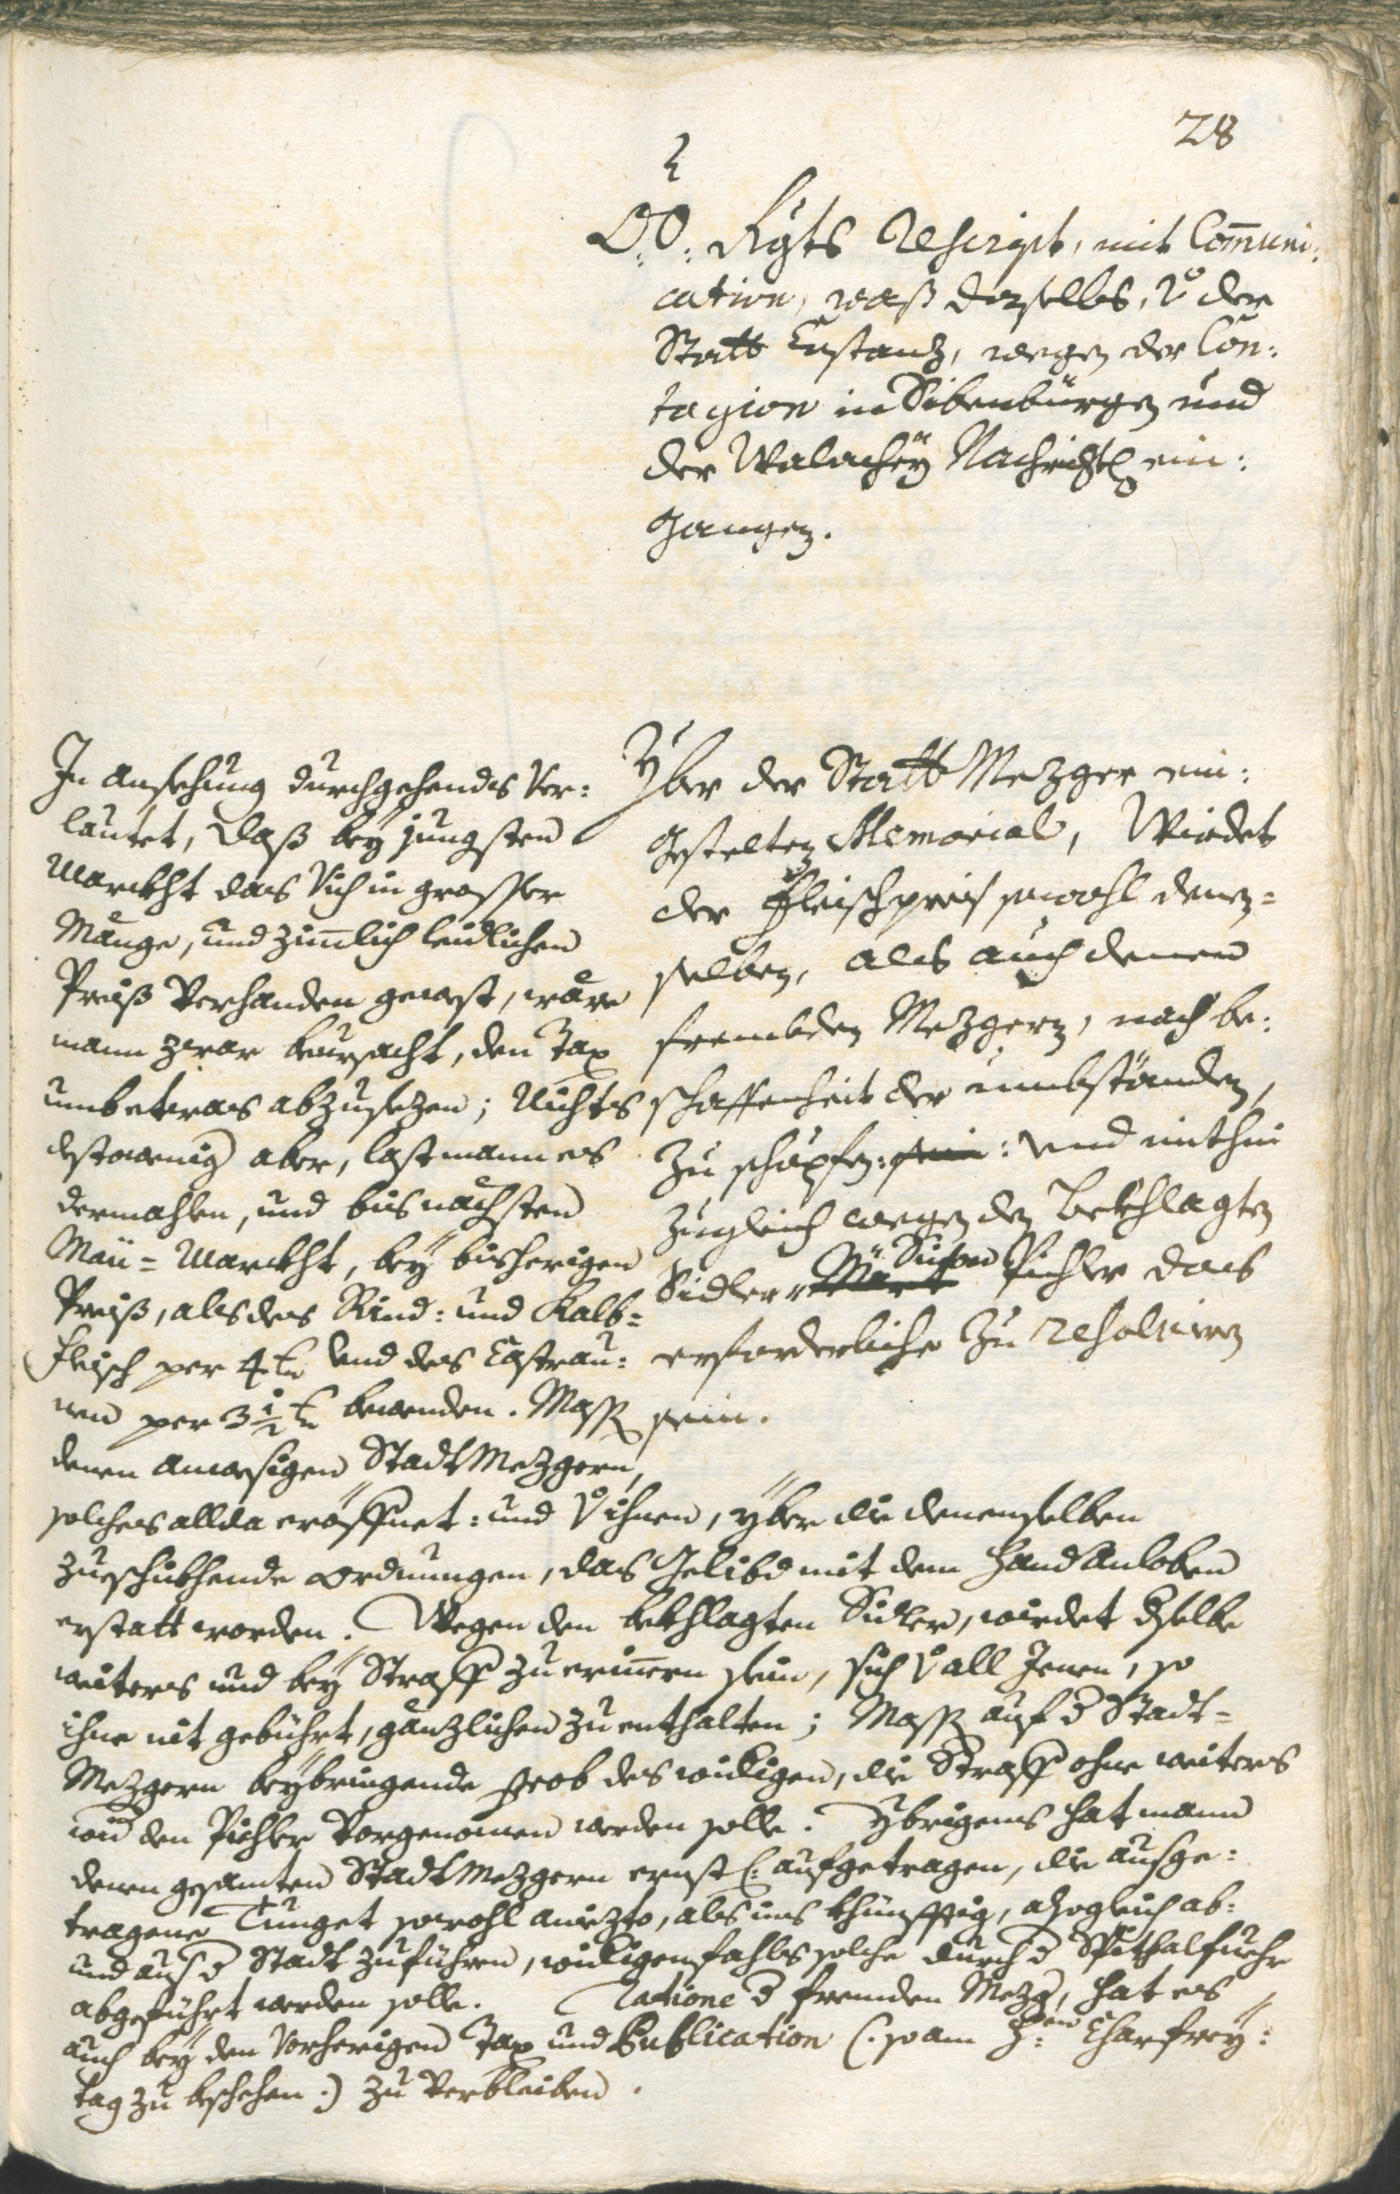 28
OÖ: Rgts Rescript, mit Communi:
cation, waß derselbs, v der
Statt Custanz, wegen der Con:
tagion in Sibenbürgen und
der Walachey Nachricht ein:
gangen.
Yber der Statt Mezger ein:
gestelten Memorial, Wirdet
der Fleischpreis sowohl denen=
selben, als auch denen
frembden Mezgern, nach be:
schaffenheit der umbständen,
zu schöpfen: sein: und mithin
zugleich wegen den beckhlagten
Sidler Simon Pichler das
erforderliche zu resolviren
sein.
In ansehung durchgehends Ver:
lautet, daß bey jungsten
Marckht das Vich in grosser
Mänge, und zimlich leidlichen
Preiß Verhanden gewest, wäre
mann zwar beursacht, den Tax
umb etwas abzusezen; Nichts
destowenig aber, last mann es
dermahlen, und bis nächsten
Maii=Marckht, bey bisherigen
Preiß, als des Rind: und Kalb=
fleisch per 4 x und des Castrau:
nen per 3 1/2 x bewenden. Mass
denen anwesigen Stadt Mezgern,
solches allda eröffnet: und v ihnen, yber die denenselben
zueschickhende ordnungen, das Gelibd mit dem Hand anloben
erstatt worden. Wegen den beckhlagten Sidler, wirdet dselbe
weiters und bey Straff zu erinern sein, sich v all Jenen, so
ihne nit gebührt, gänzlichen zu enthalten; Mass auf d Stadt=
Mezgern beybringende prob des widrigen, die Straff ohne weiters
wid den Pichler Vorgenomen werden solle. Ybrigens hat mann
denen gesamten Stadt Mezgern ernstl: aufgetragen, die ausge:
tragene Tunget sowohl aniezto, als ins khünfftig, alsogleich ab:
und aus d Stadt zuführen, widrigenfahls solche durch d Spithalfuehr
abgeführt werden solle. Ratione d fremden Mezg, hat es
auch bey den Vorherigen Tax und Publication (: so am H:en Charfrey:
tag zu beschehen :) zu Verbleiben.